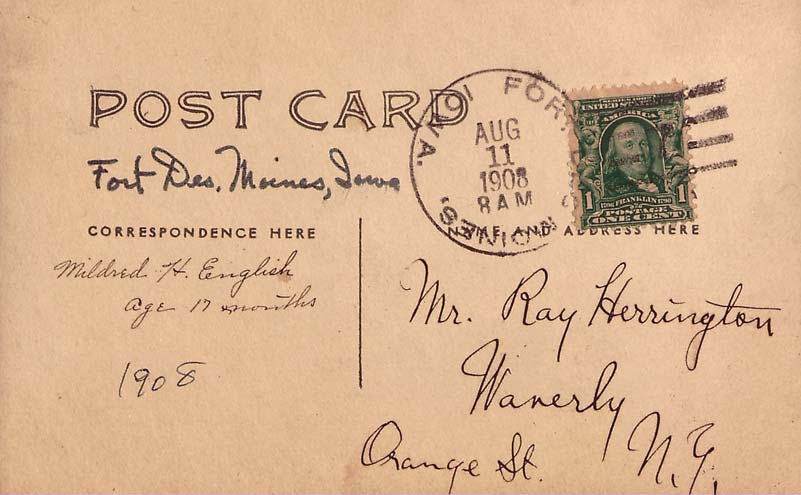 POST CARD
Fort Des. Moines, Iowa
CORRESPONDENCE HERE
Mildred H. English
age 17 months
1908
FORT
MOINES,
IOWA.
AUG
11
1908
8 AM
UNITED STATES
AMERICA
1706 FRANKLIN 1790
1 1
POSTAGE
ONE CENT
NAME AND ADDRESS HERE
Mr. Ray Herrington
Waverly
Orange St. N.Y.